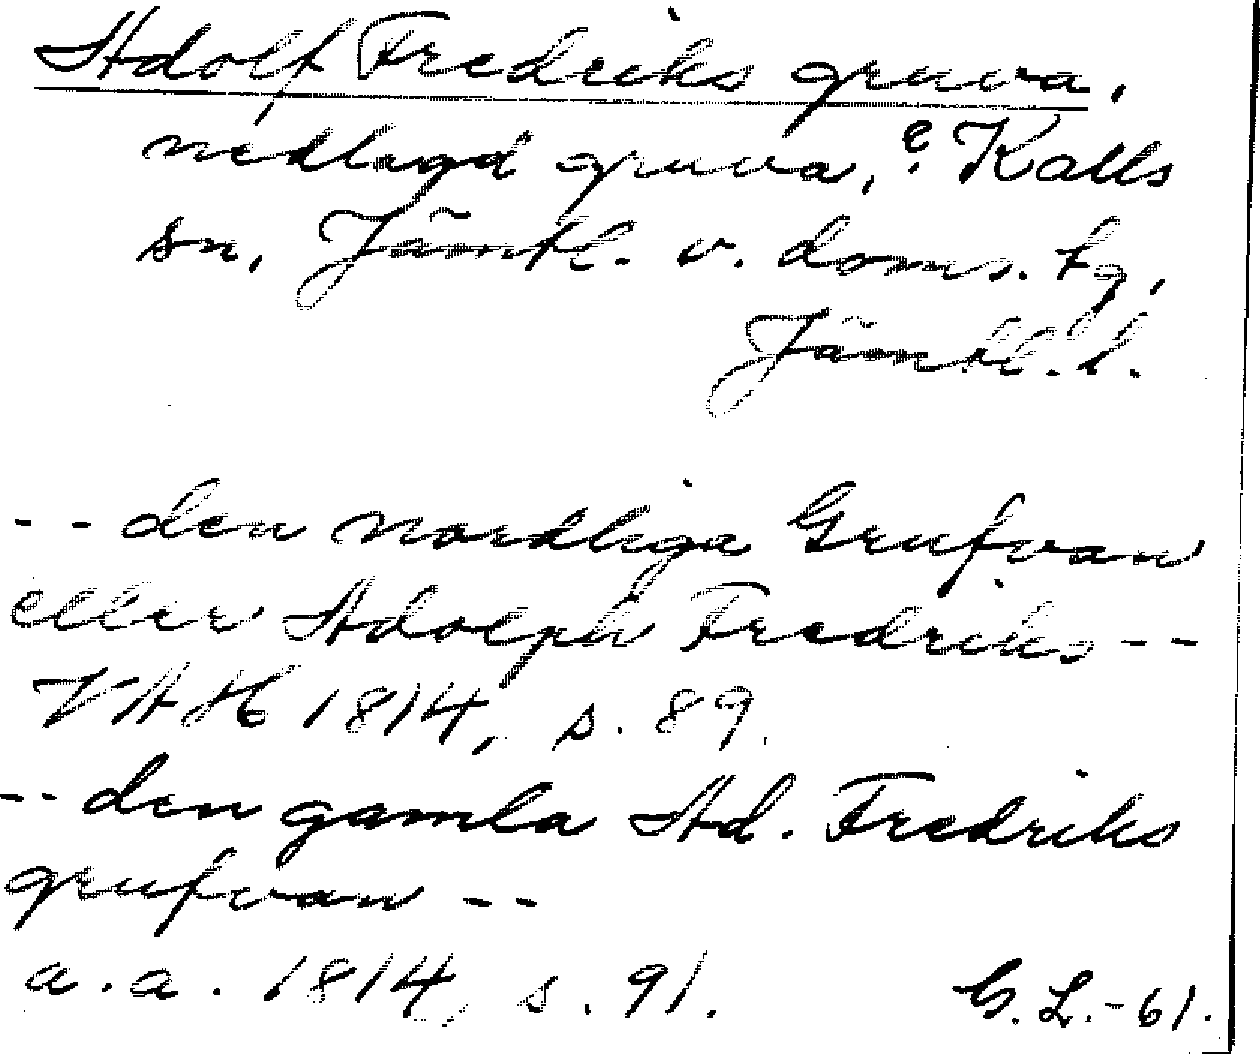 Adolf Fredriks gruva,
nedlagd gruva, ? Kalls
sn, Jämtl. v. doms. tg,
Jämtl. l.
-- den nordliga Grufvan
eller Adolph Fredriks --
VAH 1814, s. 89.
-- den gamla Ad. Fredriks
grufvan --
a. a. 1814, s. 91.
G. L. -61.